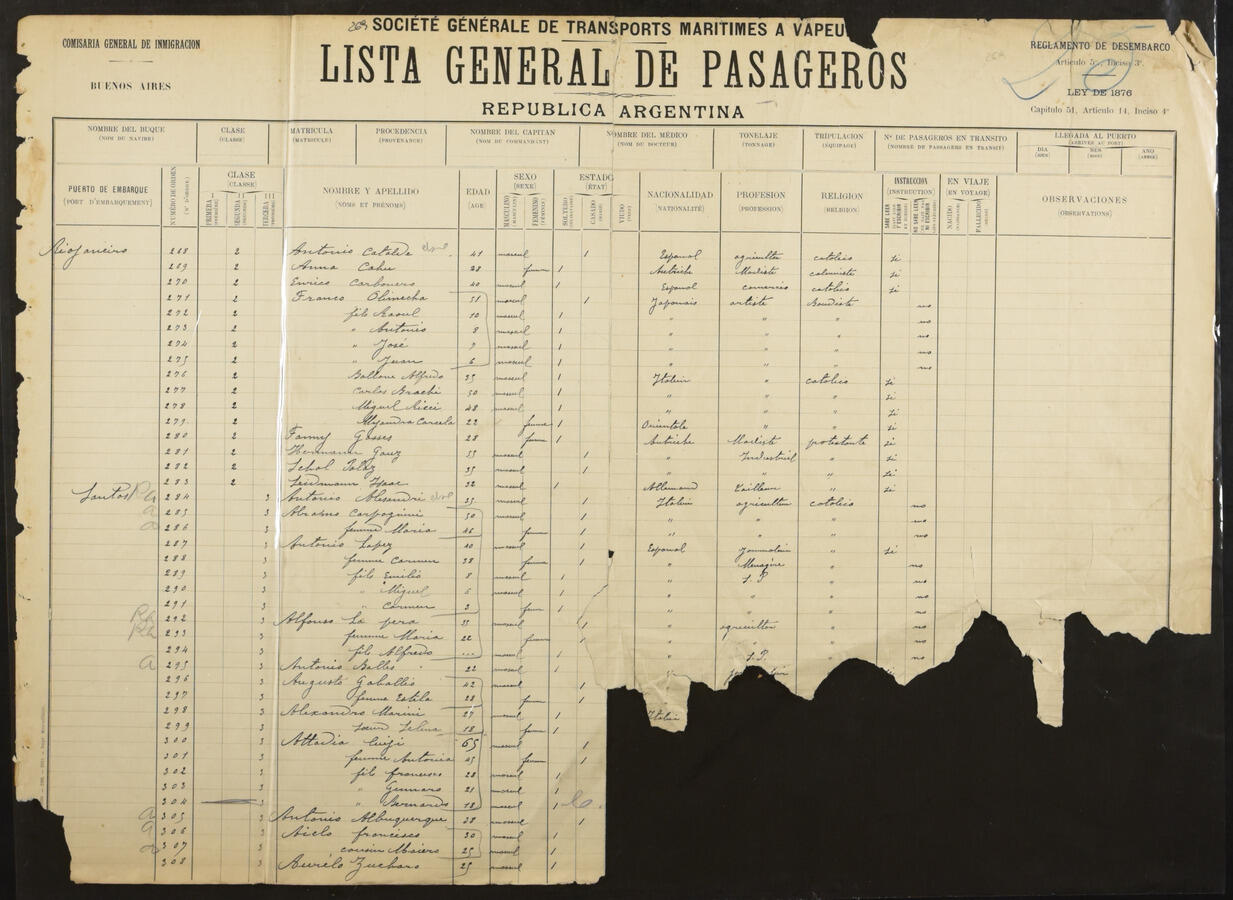 268 SOCIÉTÉ GÉNÉRALE DE TRANSPORTS MARITIMES A VAPEU
COMISARIA GENERAL DE INMIGRACION
BUENOS AIRES
LISTA GENERAL DE PASAGEROS
REPUBLICA ARGENTINA
REGLAMENTO DE DESEMBARCO
Artículo 5º, Inciso 3º.
LEY DE 1876
Capítulo 51, Artículo 14, Inciso 4º
NOMBRE DEL BUQUE CLASE MATRICULA PROCEDENCIA NOMBRE DEL CAPITAN NOMBRE DEL MÉDICO TONELAJE TRIPULACION Nº DE PASAGEROS EN TRANSITO LLEGADA AL PUERTO
(NOM DU NAVIRE) (CLASSE) (MATRICULE) (PROVENANCE) (NOM DU COMMANDANT) (NOM DU DOCTEUR) (TONNAGE) (ÉQUIPAGE) (NOMBRE DE PASSAGERS EN TRANSIT) (ARRIVÉE AU PORT)
DIA MES AÑO
PUERTO DE EMBARQUE NUMÉRO DE ORDEN CLASE NOMBRE Y APELLIDO EDAD SEXO ESTADO NACIONALIDAD PROFESION RELIGION INSTRUCCION EN VIAJE OBSERVACIONES
(PORT D'EMBARQUEMENT) (Nº D'ORDRE) (CLASSE) (NOMS ET PRÉNOMS) (AGE) (SEXE) (ÉTAT) (NATIONALITÉ) (PROFESSION) (RELIGION) (INSTRUCTION) (EN VOYAGE) (OBSERVATIONS)
PRIMERA SEGUNDA TERCERA MASCULINO FEMENINO SOLTERO CASADO VIUDO NACIDO FALLECIDO
Riojaneiro 268 2 Antonio 41 mascul 1 Espanol agriculteur catolico si
269 2 Anna Cahu 28 femme 1 Autriche Modiste si
270 2 Enrico Carbonero 40 mascul 1 Espanol comercio catolico si
271 2 Franco Olimecha 51 mascul 1 Japonais artiste Boudiste no
272 2 fils Raoul 10 mascul 1 " " " no
273 2 " Antonio 8 mascul 1 " " " no
274 2 " José 7 mascul 1 " " " no
275 2 " Juan 6 mascul 1 " " " no
276 2 Ballone Alfredo 35 mascul 1 Italien " catolico si
277 2 Carlos 50 mascul 1 " " " si
278 2 Miguel Ricci 48 mascul 1 " " " si
279 2 Alejandra 22 femme 1 Orientale " " si
280 2 Fanny Gasses 28 femme 1 Autriche Modiste protestante si
281 2 Hermann Gauz 55 mascul 1 " Industriel " si
282 2 35 mascul 1 " " " si
283 2 Isaac 32 mascul 1 Allemand Tailleur " si
Santos 284 3 Antonio Alesandri 35 mascul 1 Italien agriculteur catolico no
285 3 Abramo 50 mascul 1 " " " no
286 3 femme Maria 46 femme 1 " " " no
287 3 Antonio Lopez 40 mascul 1 Espanol " si
288 3 femme Carmen 38 femme 1 " Menagère " no
289 3 fils Emilio 8 mascul 1 " S.P " no
290 3 " Miguel 5 mascul 1 " " " no
291 3 " Carmen 3 femme 1 " " " no
292 3 Alfonso La pera 35 mascul 1 " agriculteur " no
293 3 femme Maria 22 femme 1 " " " no
294 3 fils Alfredo ... mascul 1 " S.P. " no
295 3 Antonio Balles 22 mascul 1
296 3 Augusto Gaballes 42 mascul 1
297 3 femme Estila 28 femme 1
298 3 Alexandro Marini 27 mascul 1 Italien
299 3 soeur Selina 18 femme 1
300 3 Attadia Luigi 65 mascul 1
301 3 femme Antonia 45 femme 1
302 3 fils francesco 28 mascul 1
303 3 " Gennaro 21 mascul 1
304 3 " Bernardo 18 mascul 1
305 3 Antonio Albuquerque 28 mascul 1
306 3 Aiclo francisco 30 mascul 1
307 3 cousin 25 mascul 1
308 3 Aurélo Zucharo 25 mascul 1